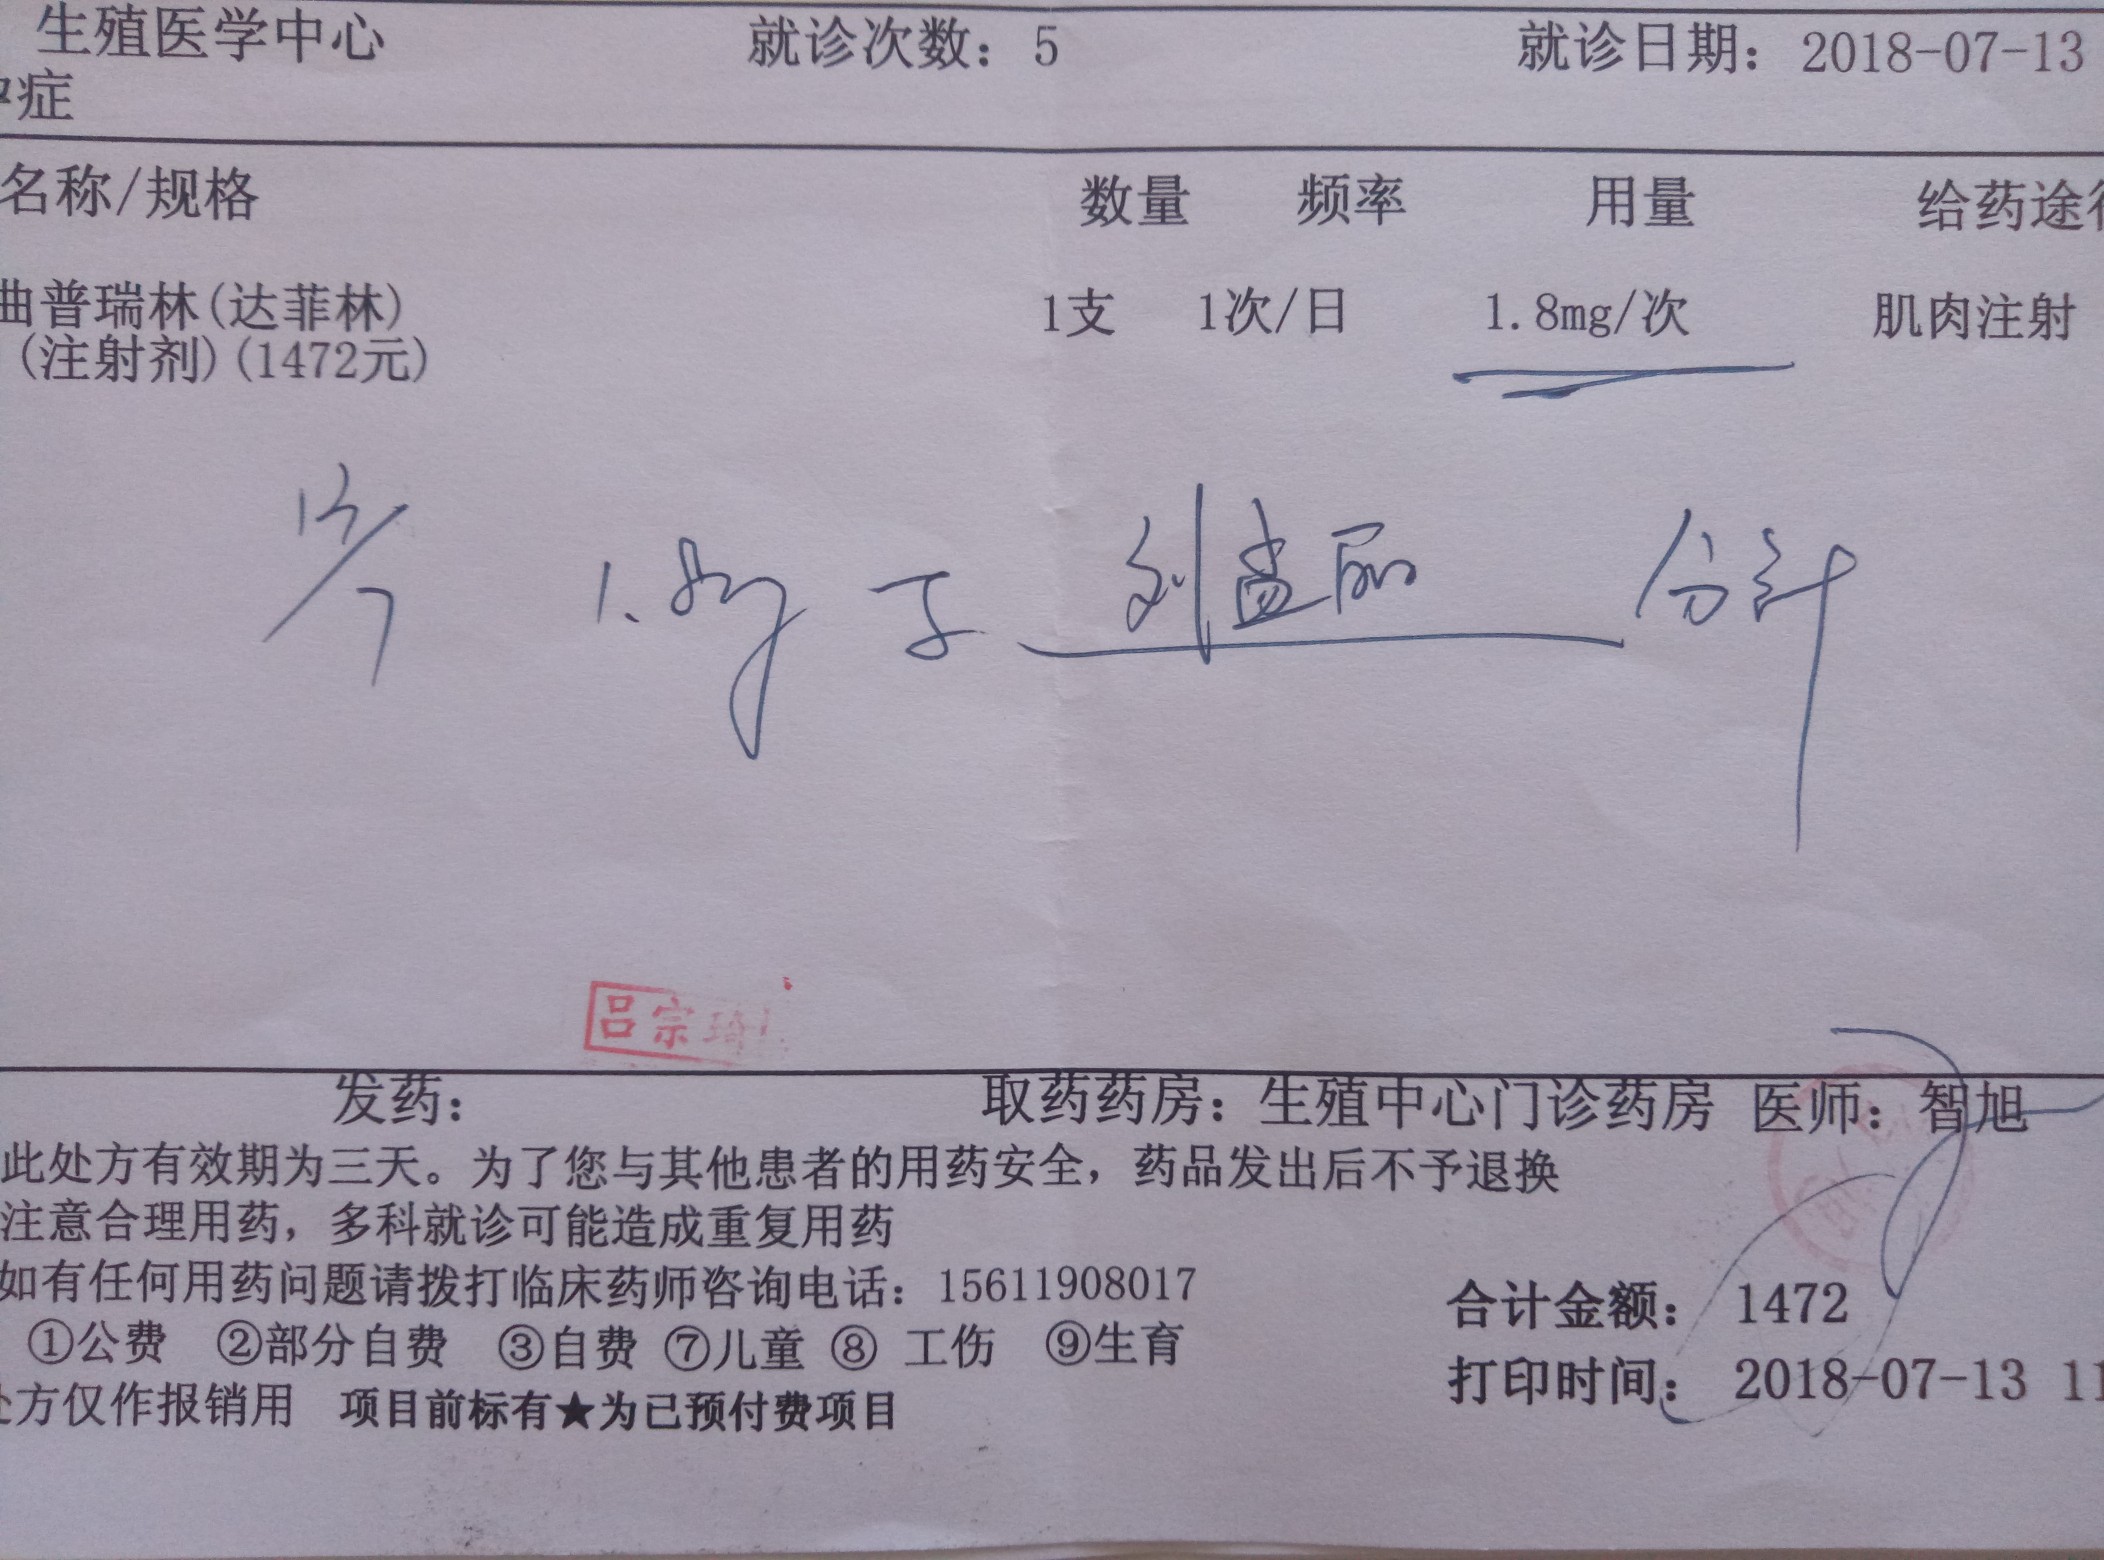 生殖医学中心 就诊次数：5 就诊日期：2018-07-13
症
名称/规格 数量 频率 用量 给药途
曲普瑞林(达菲林) 1支 1次/日 1.8mg/次 肌肉注射
(注射剂)(1472元)
13/7 1.8mg 于 刘益丽 分针
吕宗琦
发药： 取药药房：生殖中心门诊药房 医师：智旭
此处方有效期为三天。为了您与其他患者的用药安全，药品发出后不予退换
注意合理用药，多科就诊可能造成重复用药
如有任何用药问题请拨打临床药师咨询电话：15611908017
合计金额： 1472
①公费 ②部分自费 ③自费 ⑦儿童 ⑧ 工伤 ⑨生育
打印时间： 2018-07-13 11
方仅作报销用 项目前标有★为已预付费项目